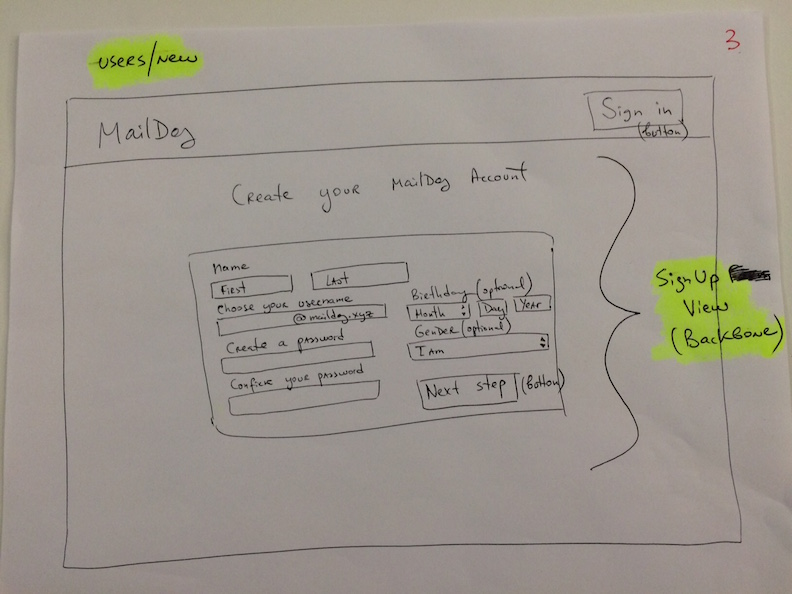 users/new
3
MailDog
Sign in
(button)
Create your MailDog Account
Name
First
Last
Choose your username
@maildog.xyz
Create a password
Confirm your password
Birthday (optional)
Month
Day
Year
Gender (optional)
I am
Next step
(button)
SignUp
View
(Backbone)